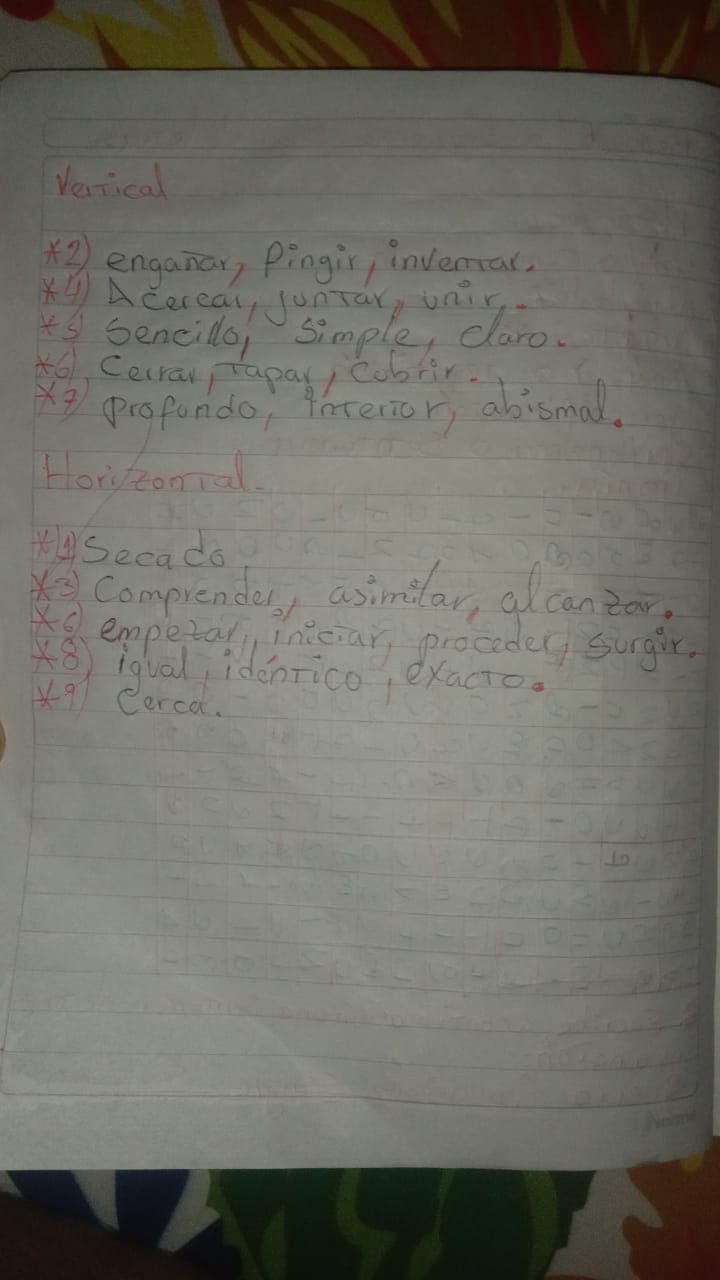 Vertical
*2) engañar, Pingir, inventar.
*4) Acercar, juntar, unir.
*5) Sencillo, Simple, claro.
*6) Cerrar, Tapar, Cubrir.
*7) profundo, interior, abismal.
Horizontal.
*1) Secado
*3) Comprender, asimilar, alcanzar.
*6) empezar, iniciar, proceder, surgir.
*8) igual, idéntico, exacto.
*9) Cerca.
Norma